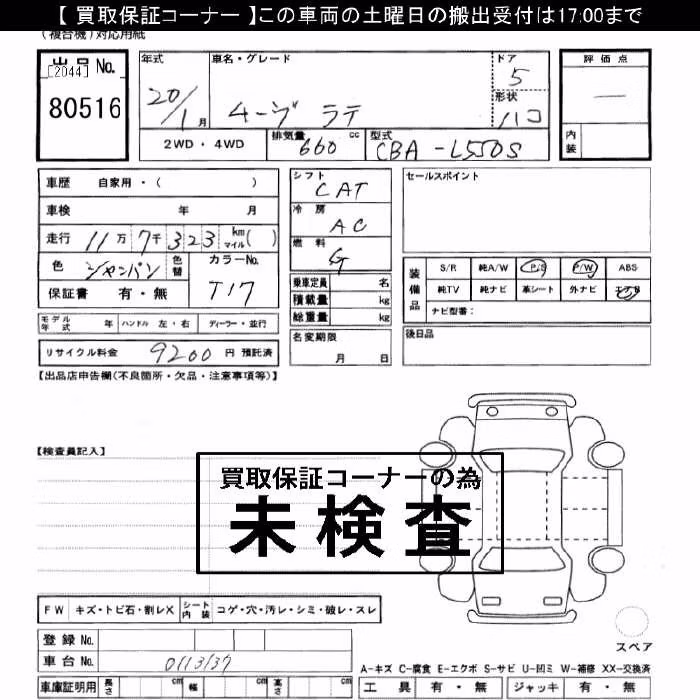 【 買取保証コーナー 】この車両の土曜日の搬出受付は17:00まで
(複合機)対応用紙
出品 No.
[2044]
80516
年式
20/1月
車名・グレード
ムーヴ ラテ
ドア
5
形状
ハコ
評価点
—
内装
2WD・4WD
排気量 660 cc
型式 CBA-L550S
車歴 自家用・( )
車検 年 月
走行 11万 7千 323 km マイル( )
色 シャンパン 色替
カラーNo.
T17
保証書 有・無
シフト
CAT
冷房
AC
燃料
G
乗車定員 名
積載量 kg
総重量 kg
セールスポイント
装備品
S/R 純A/W P/S P/W ABS
純TV 純ナビ 革シート 外ナビ エアB
ナビ型番:
モデル年式 年 ハンドル 左・右 ディーラー・並行
名変期限
月 日
後日品
リサイクル料金 9200 円 預託済
【出品店申告欄(不良箇所・欠品・注意事項等)】
【検査員記入】
買取保証コーナーの為
未検査
FW キズ・トビ石・割レX シート内装 コゲ・穴・汚レ・シミ・破レ・スレ
スペア
登録 No.
車台 No. 0113137
A-キズ C-腐食 E-エクボ S-サビ U-凹ミ W-補修 XX-交換済
車庫証明用 長さ cm 幅 cm 高さ cm
工具 有・無 ジャッキ 有・無